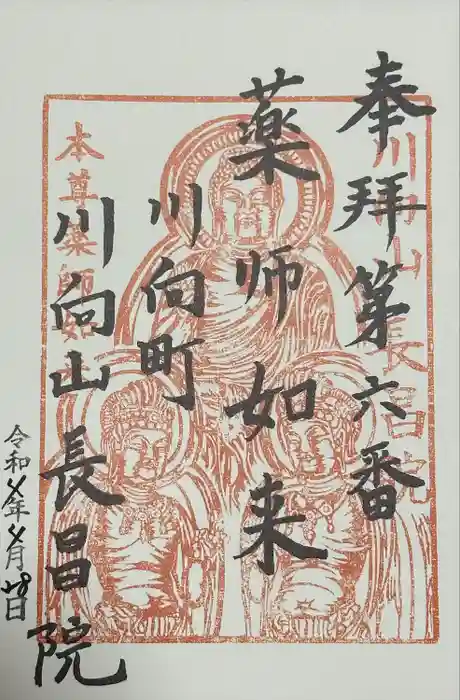 奉拝第六番
薬師如来
川向町
川向山長昌院
令和〆年〆月廿8日
川向山長昌院
本尊薬師如